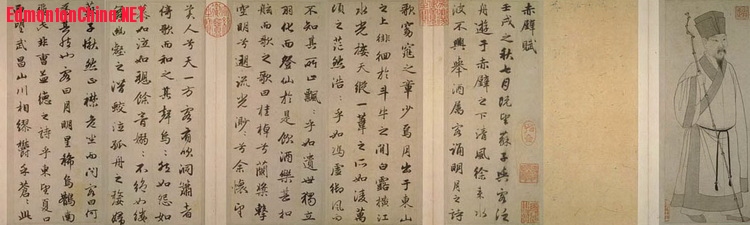 EdmontonChina.NET
赤壁賦
壬戌之秋七月既望蘇子與客泛
舟遊于赤壁之下清風徐來水
波不興舉酒屬客誦明月之詩
歌窈窕之章少焉月出于東山
之上徘徊於斗牛之間白露橫江
水光接天縱一葦之所如淩萬
頃之茫然浩浩乎如馮虛御風而
不知其所止飄飄乎如遺世獨立
羽化而登仙於是飲酒樂甚扣
舷而歌之歌曰桂棹兮蘭槳擊
空明兮遡流光渺渺兮余懷望
美人兮天一方客有吹洞簫者
倚歌而和之其聲嗚嗚然如怨如
慕如泣如訴餘音嫋嫋不絕如縷
舞幽壑之潛蛟泣孤舟之嫠婦
蘇子愀然正襟危坐而問客曰何
為其然也客曰月明星稀烏鵲南
飛此非曹孟德之詩乎望夏口
東望武昌山川相繆鬱乎蒼蒼此